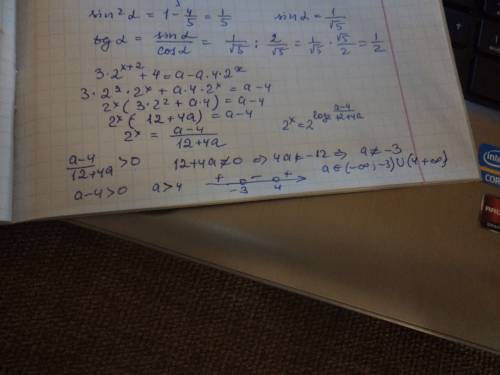 sin²α = 1 - 4/5 = 1/5 sinα = 1/√5
tgα = sinα/cosα = 1/√5 : 2/√5 = 1/√5 · √5/2 = 1/2
3·2^(x+2) + 4 = a - a·4·2^x
3·2²·2^x + a·4·2^x = a - 4
2^x (3·2² + a·4) = a - 4
2^x (12 + 4a) = a - 4
2^x = (a-4)/(12+4a) 2^x = 2^(log₂ (a-4)/(12+4a))
(a-4)/(12+4a) > 0 12+4a ≠ 0 ⇒ 4a ≠ -12 ⇒ a ≠ -3
a-4>0 a>4 + -3 - 4 + a ∈ (-∞; -3) ∪ (4 +∞)
intel
COR